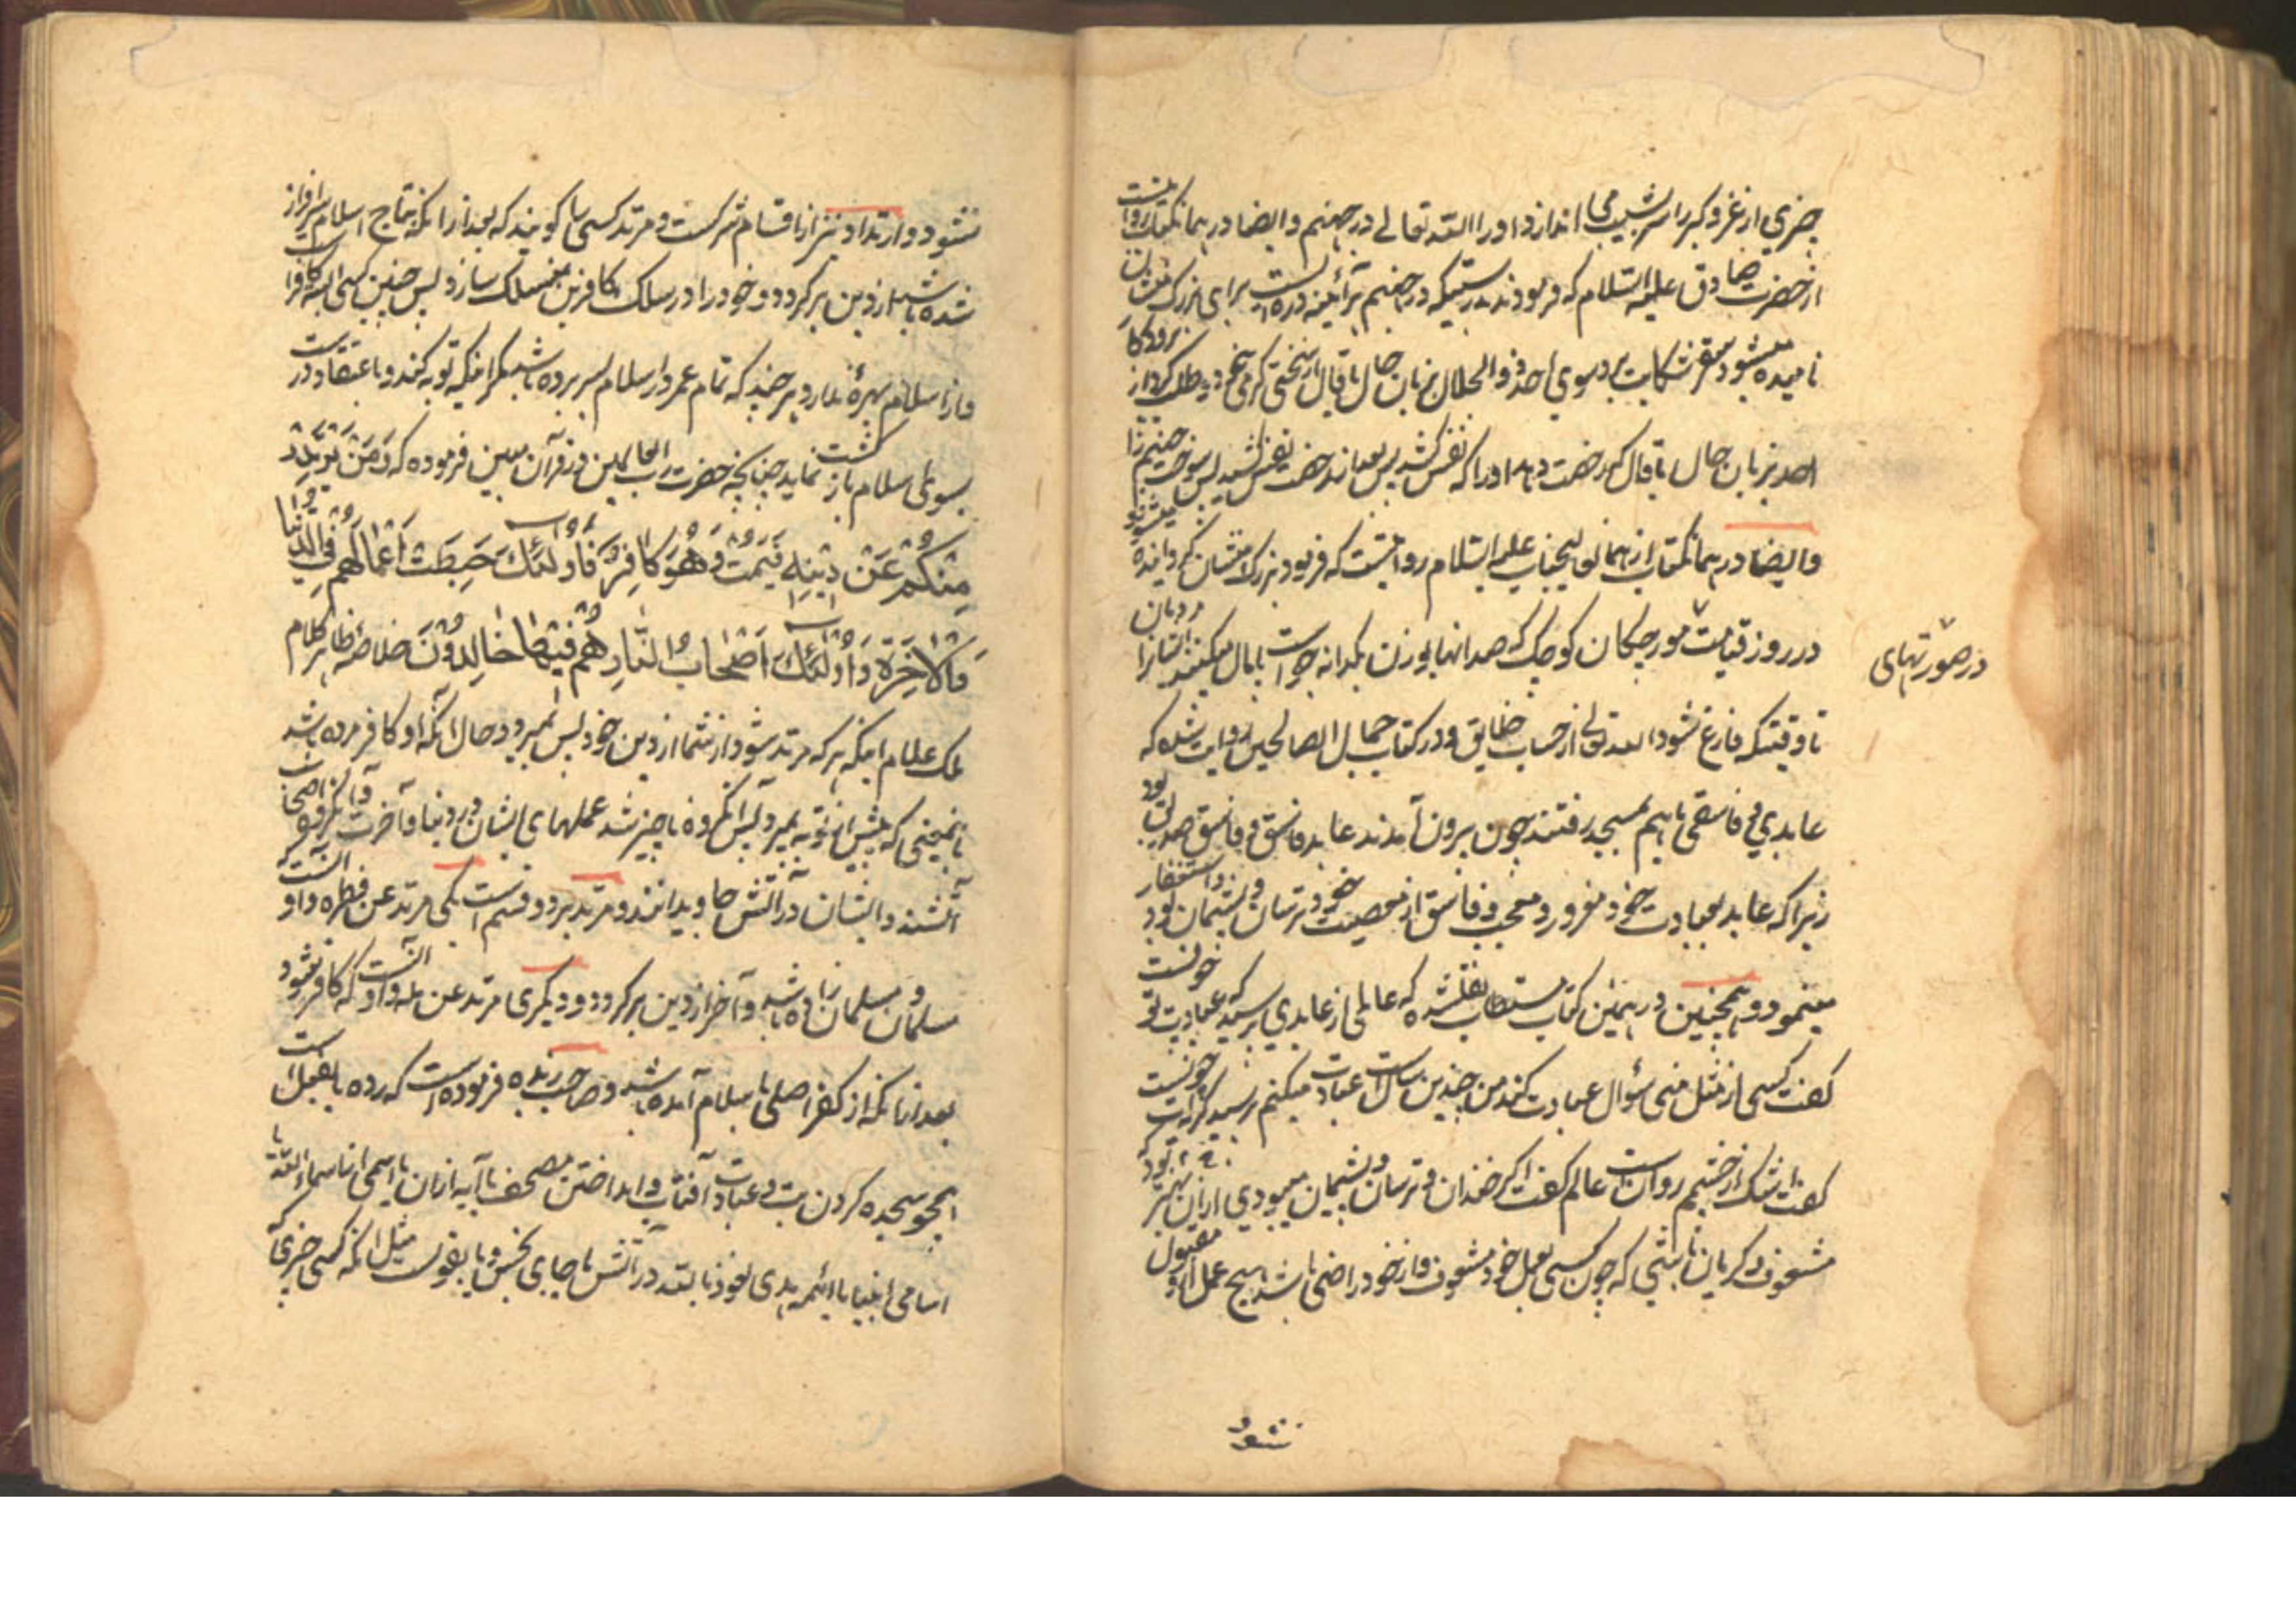 چیزی از عز و کبر را سرشیب می اندازد او را الله تعالی در جهنم و ایضا در همانکتاب روایتست
از حضرت صادق علیه السلام که فرمودند بدرستیکه در جهنم هرآئینه دره ایست برای بزرگ منشان
نامیده میشود سقر شکایت برد بسوی احد ذو الجلال بزبان حال یا قال از سختی گرمی خود و طلب کرد از پروردگار
احد بزبان حال یا قال که رخصت دهد او را که نفس کشد پس بعد از رخصت نفس کشید پس سوخت جهنم را
و ایضا در همانکتاب از همان عالیجناب علیه السلام روایتست که فرمود بزرگ منشان گردانیده میشوند
در روز قیامت مورچکان کوچک که صد انها بوزن یکدانه جو است پامال میکنند ایشانرا مردمان
در صورتهای
تا وقتیکه فارغ شود الله تعالی از حساب خلایق و در کتاب جمال الصالحین روایت شده که
عابدی و فاسقی باهم بمسجد رفتند چون بیرون آمدند عابد فاسق و فاسق صدیق بود
زیرا که عابد بعبادت خود مغرور و معجب و فاسق از معصیت خود ترسان و پشیمان بود و استغفار
مینمود و همچنین در همین کتاب مستطاب نقلشده که عالمی از عابدی پرسید که عبادت تو چونست
گفت کسی از مثل منی سؤال عبادت کند من چندین سالست عبادت میکنم پرسید گریه ات چونست
گفت اشک از چشمم روانست عالم گفت اگر خندان و ترسان و پشیمان میبودی ازان بهتر بود که
مشعوف و گریان باشی که چون کسی بعمل خود مشعوف و از خود راضی باشد هیچ عمل او مقبول
نشود
نشود و ارتداد نیز از اقسام شرکست و مرتد کسی را گویند که بعد از انکه بتاج اسلام سرافراز
شده باشد از دین برگردد و خود را در سلک کافرین منسلک سازد پس چنین کسی البته کافر است
و از اسلام بهرهٔ ندارد هر چند که تمام عمر در اسلام بسر برده باشد مگر اینکه توبه کند و باعتقاد درست
بسوی اسلام بازگشت نماید چنانچه حضرت رب العالمین در قرآن مبین فرموده که وَمَنْ یَرْتَدِدْ
مِنْکُمْ عَنْ دِیْنِهِ فَیَمُتْ وَهُوَ کَافِرٌ فَاُولٰئِکَ حَبِطَتْ اَعْمَالُهُمْ فِی الدُّنْیَا
وَالْاٰخِرَةِ وَاُولٰئِکَ اَصْحَابُ النَّارِ هُمْ فِیْهَا خَالِدُوْنَ خلاصه ظاهر کلام
ملک علام اینکه هر که مرتد شود از شما از دین خود پس بمیرد و حال انکه او کافر مرده باشد
بانمعنی که پیش از توبه بمیرد پس انگروه ناچیز شد عملهای ایشان در دنیا و آخرت و انگروه اصحاب
آتشند و ایشان در آتش جاویدانند و مرتد بر دو قسم است یکی مرتد عن فطره و او آنست که
مسلمان و مسلمان زاده باشد و آخر از دین برگردد و دیگری مرتد عن مله و او آنست که کافر شود
بعد از انکه از کفر اصلی باسلام آمده باشد و صاحب زبده فرموده است که رده یا بفعل است
همچو سجده کردن بت و عبادت آفتاب و انداختن مصحف یا آیه ازان یا اسمی از اسماء الله یا
اسامی انبیا یا ائمه هدی نعوذ بالله در آتش یا جای نجس و یا بقولست مثل انکه کسی چیزی که